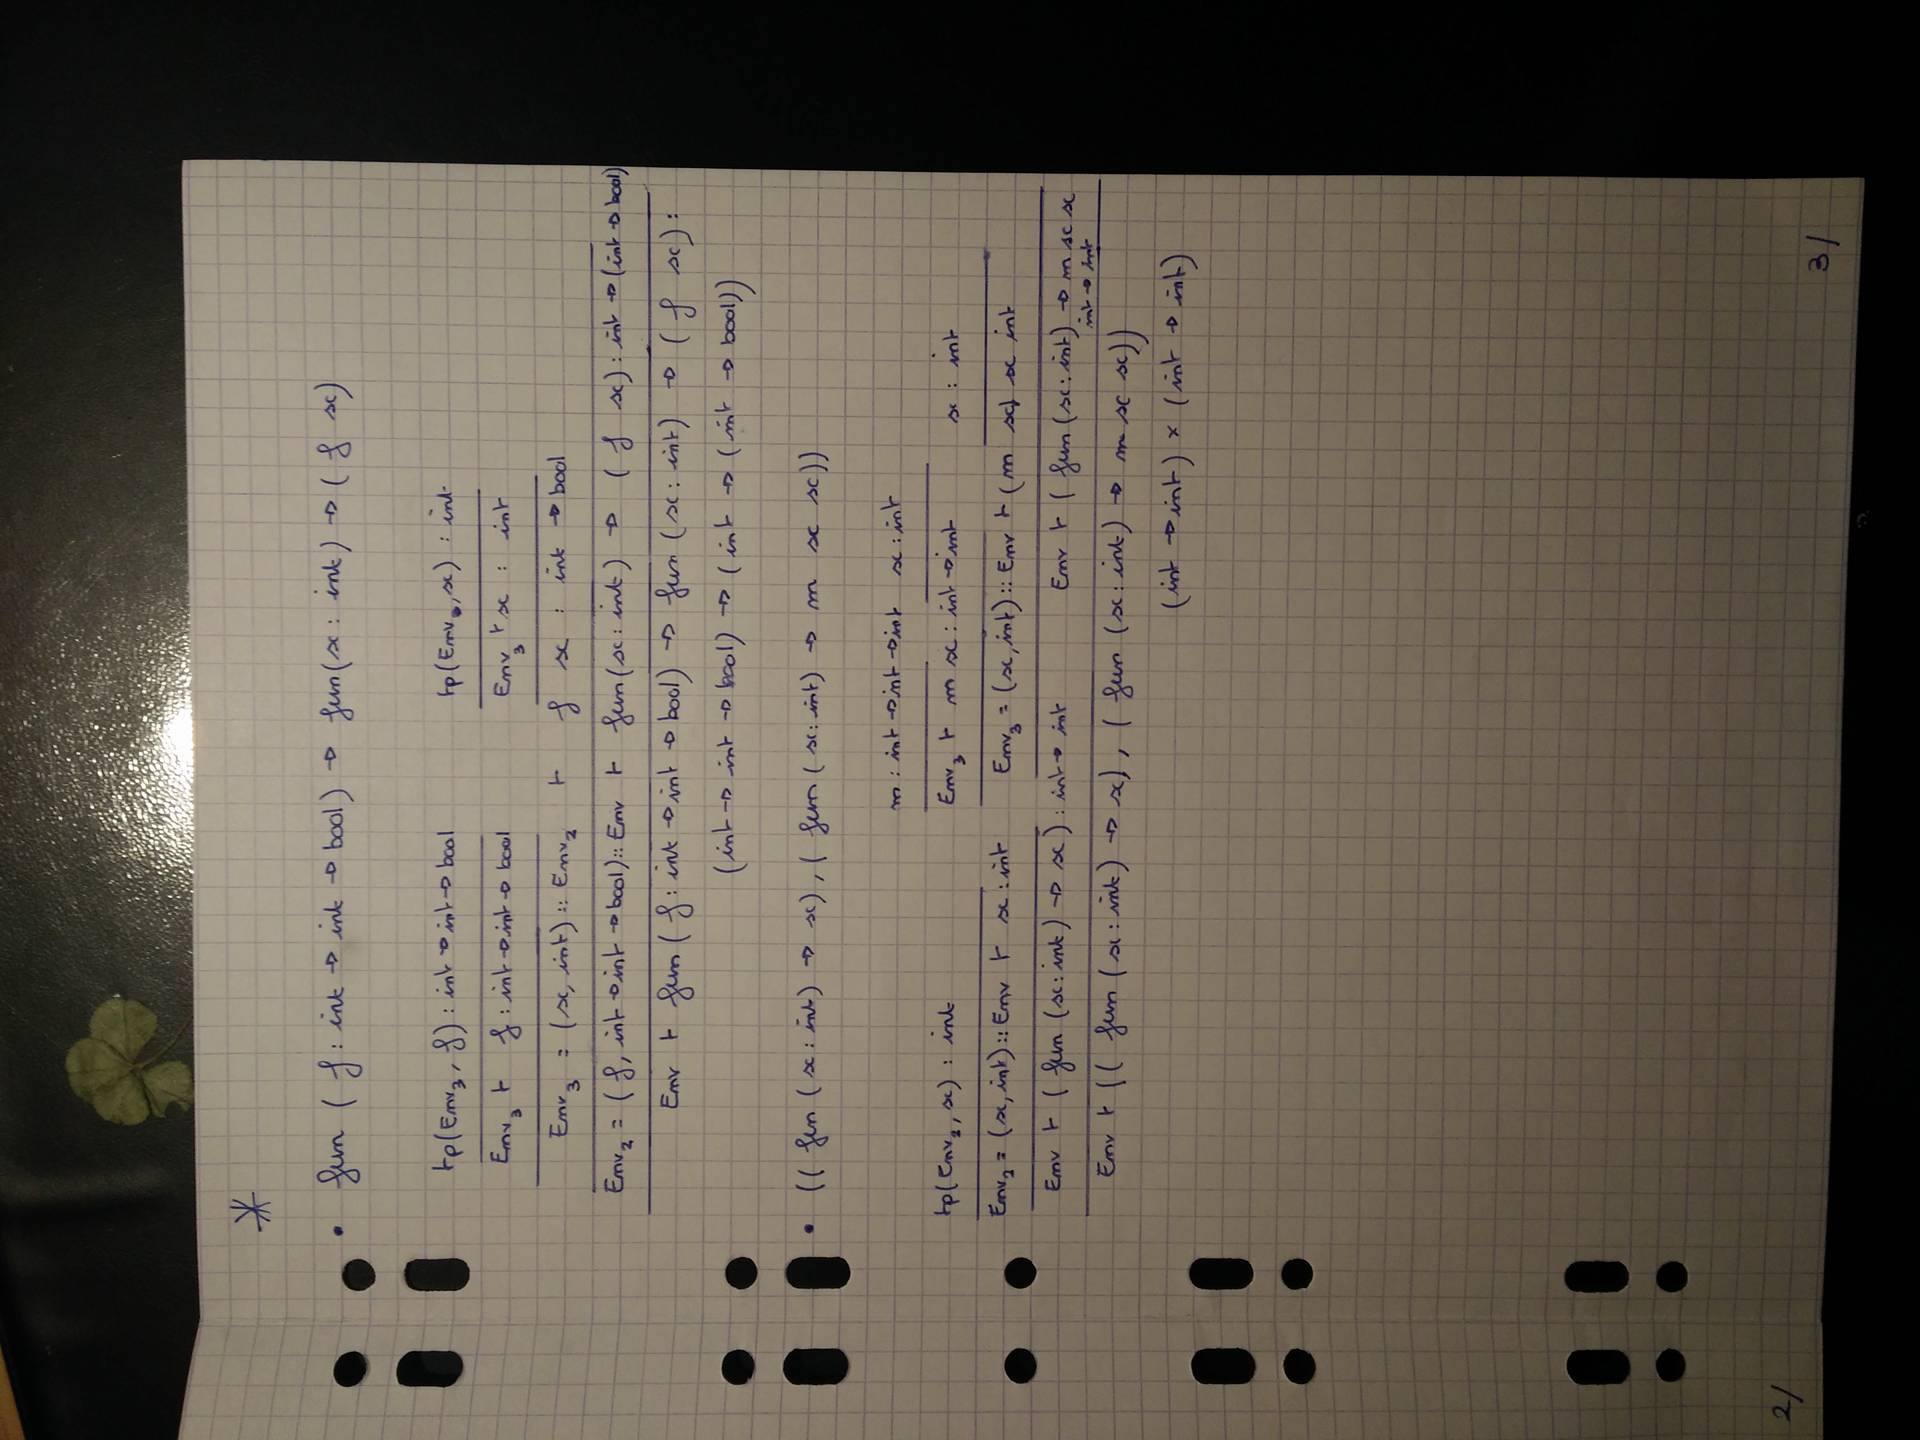 *
• fun (f : int → int → bool) → fun(x : int) → (f x)
tp(Env₃, f) : int → int → bool tp(Env₀, x) : int
Env₃ ⊢ f : int → int → bool Env₃ ⊢ x : int
Env₃ = (x, int) :: Env₂ ⊢ f x : int → bool
Env₂ = (f, int → int → bool) :: Env ⊢ fun(x : int) → (f x) : int → (int → bool)
Env ⊢ fun (f : int → int → bool) → fun (x : int) → (f x) :
(int → int → bool) → (int → (int → bool))
• ((fun (x : int) → x), (fun (x : int) → m x x))
m : int → int → int x : int
tp(Env₂, x) : int Env₃ ⊢ m x : int → int x : int
Env₂ = (x, int) :: Env ⊢ x : int Env₃ = (x, int) :: Env ⊢ (m x) x int
Env ⊢ (fun (x : int) → x) : int → int Env ⊢ (fun (x : int) → m x x
int → int
Env ⊢ ((fun (x : int) → x), (fun (x : int) → m x x))
(int → int) × (int → int)
3/
2/